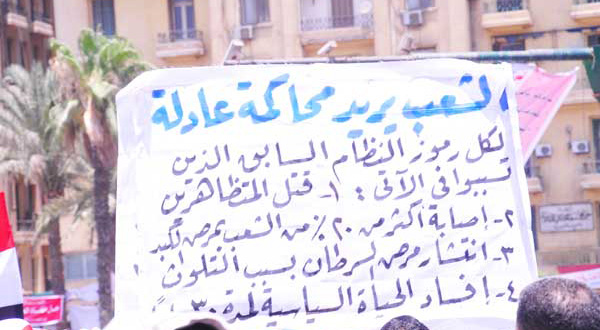 الشعب يريد محاكمة عادلة
لكل رموز النظام السابق الذين
تسببوا في الآتى : ١- قتل المتظاهرين
٢- إصابة أكثر من ٢٠٪ من الشعب بمرض الكبد
٣- انتشار مرض السرطان بسبب التلوث
٤- إفساد الحياة السياسية لمدة ٣٠